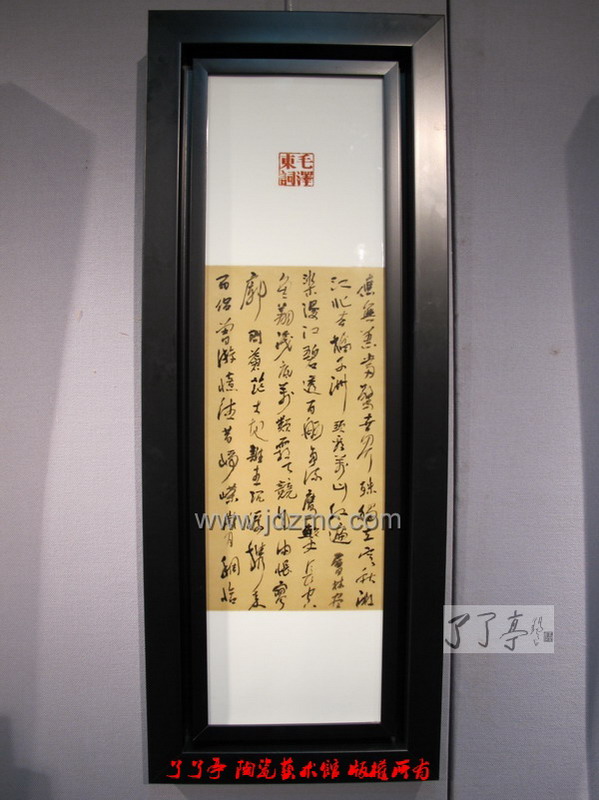 毛澤
東詞
應無恙當驚世界殊獨立寒秋湘
江北去橘子洲頭看萬山紅遍層林盡
染漫江碧透百舸爭流鷹擊長空
魚翔淺底萬類霜天競自由悵寥
廓問蒼茫大地誰主沉浮攜來
百侣曾游憶往昔崢嶸歲月稠恰
www.jdzmc.com
了了亭
了了亭 陶瓷藝术館 版權所有